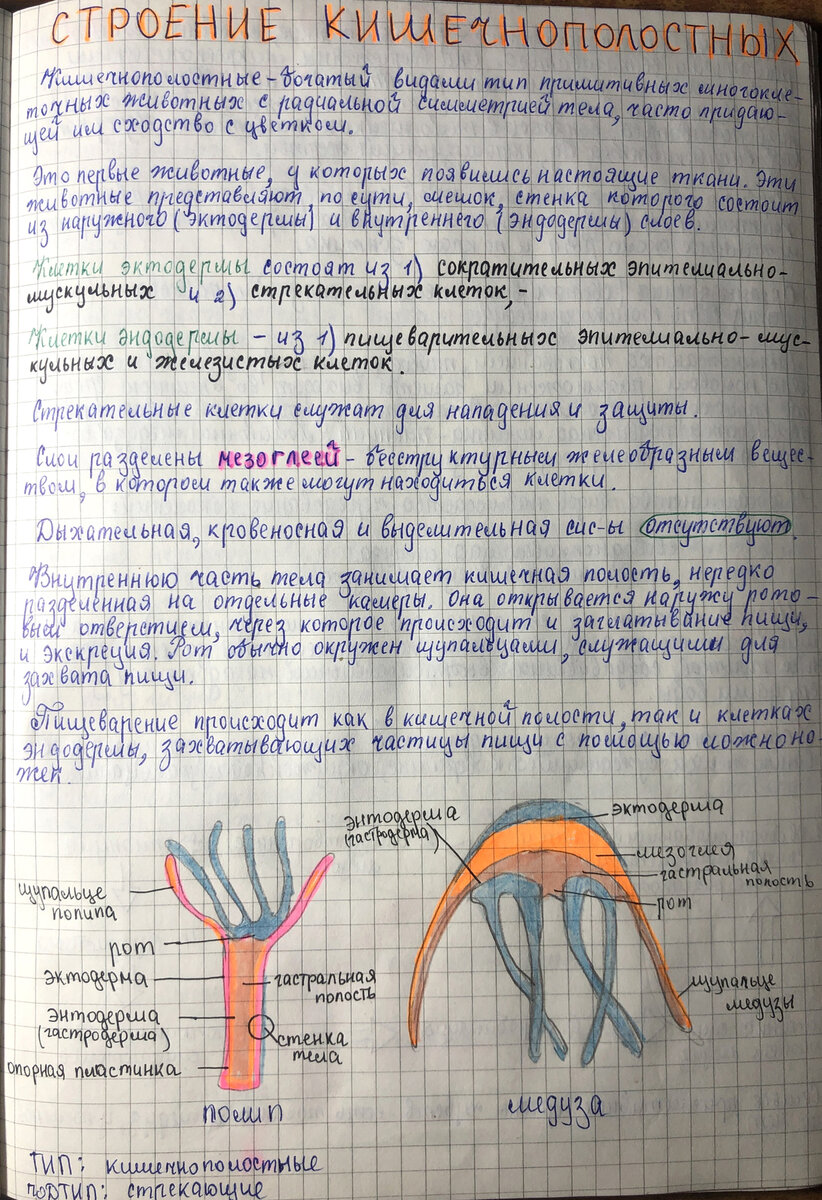 СТРОЕНИЕ КИШЕЧНОПОЛОСТНЫХ
Кишечнополостные - богатый видами тип примитивных многокле-
точных животных с радиальной симметрией тела, часто придаю-
щей им сходство с цветком.
Это первые животные, у которых появились настоящие ткани. Эти
животные представляют, по сути, мешок, стенка которого состоит
из наружного (эктодермы) и внутреннего (эндодермы) слоев.
Клетки эктодермы состоят из 1) сократительных эпителиально-
мускульных и 2) стрекательных клеток, -
Клетки эндодермы - из 1) пищеварительных эпителиально-мус-
кульных и железистых клеток.
Стрекательные клетки служат для нападения и защиты.
Слои разделены мезоглеей - бесструктурным желеобразным вещес-
твом, в котором также могут находиться клетки.
Дыхательная, кровеносная и выделительная сис-ы отсутствуют.
Внутреннюю часть тела занимает кишечная полость, нередко
разделенная на отдельные камеры. Она открывается наружу рото-
вым отверстием, через которое происходит и заглатывание пищи,
и экскреция. Рот обычно окружен щупальцами, служащими для
захвата пищи.
Пищеварение происходит как в кишечной полости, так и клетках
эндодермы, захватывающих частицы пищи с помощью ложноно-
жек.
щупальце
полипа
рот
эктодерма
энтодерма
(гастродерма)
опорная пластинка
гастральная
полость
стенка
тела
полип
энтодерма
(гастродерма)
эктодерма
мезоглея
гастральная
полость
рот
щупальце
медузы
медуза
ТИП: кишечнополостные
ПОДТИП: стрекающие